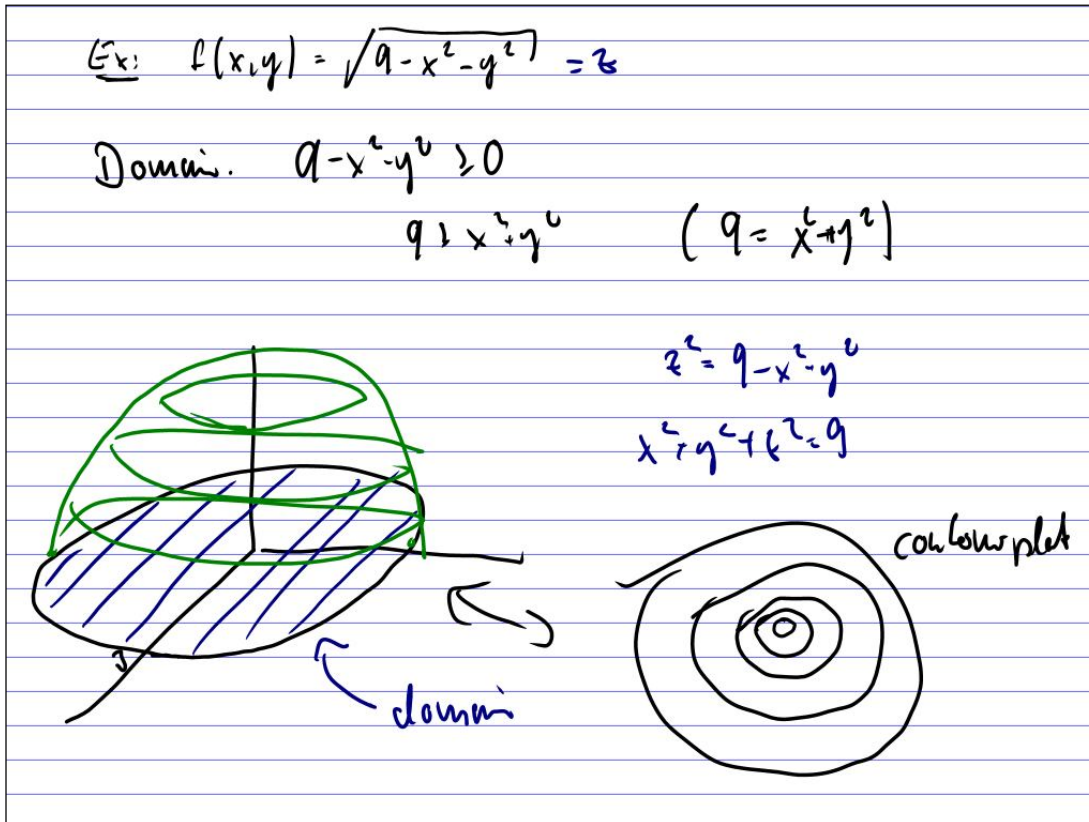 Ex: f(x,y) = √(9 - x² - y²) = z
Domain. 9 - x² - y² ≥ 0
9 ≥ x² + y² (9 = x² + y²)
z² = 9 - x² - y²
x² + y² + z² = 9
contour plot
3
domain